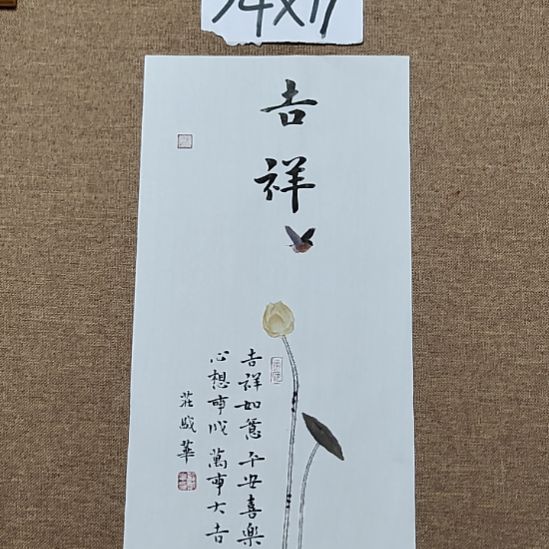 吉祥
吉祥如意平安喜樂
心想事成萬事大吉
莊畯華